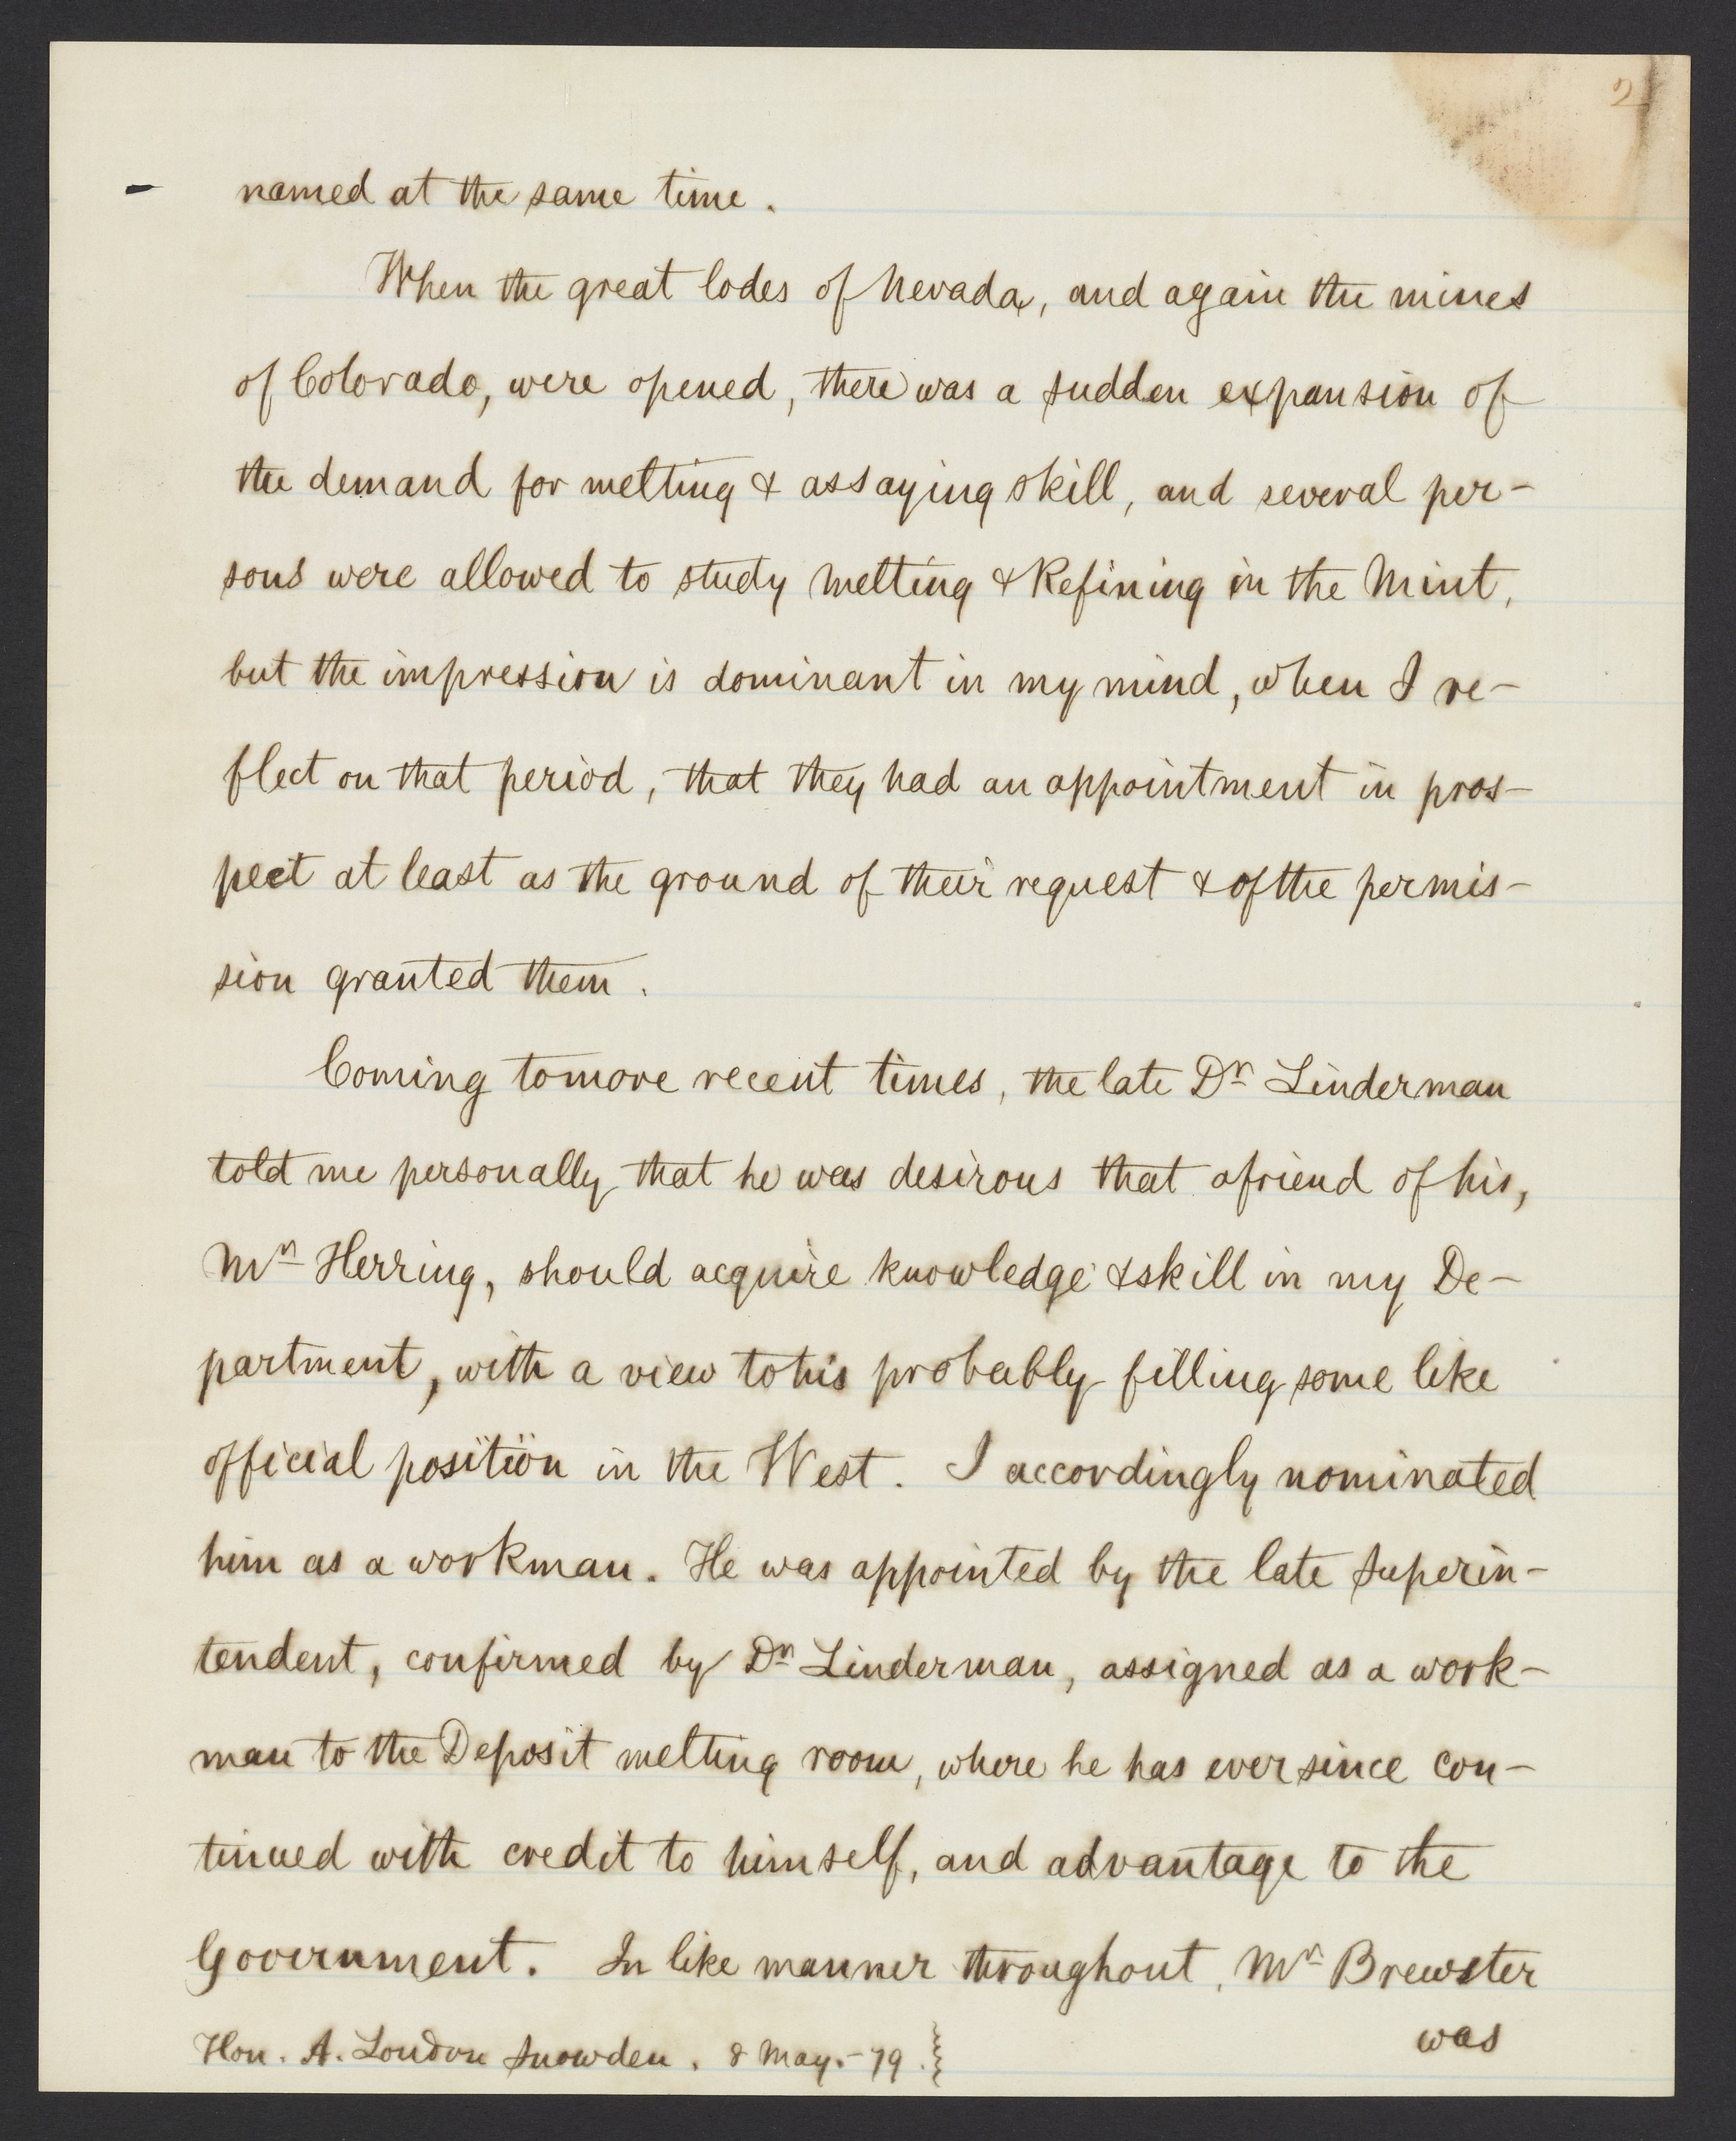 2
named at the same time.
When the great lodes of Nevada, and again the mines
of Colorado, were opened, there was a sudden expansion of
the demand for melting & assaying skill, and several per-
sons were allowed to study Melting & Refining in the Mint,
but the impression is dominant in my mind, when I re-
flect on that period, that they had an appointment in pros-
pect at least as the ground of their request & of the permis-
sion granted them.
Coming to more recent times, the late Dr Linderman
told me personally that he was desirous that a friend of his,
Mr Herring, should acquire knowledge & skill in my De-
partment, with a view to his probably filling some like
official position in the West. I accordingly nominated
him as a workman. He was appointed by the late Superin-
tendent, confirmed by Dr Linderman, assigned as a work-
man to the Deposit melting room, where he has ever since con-
tinued with credit to himself, and advantage to the
Government. In like manner throughout, Mr Brewster
was
Hon. A. Loudon Snowden. 8 May.-79.